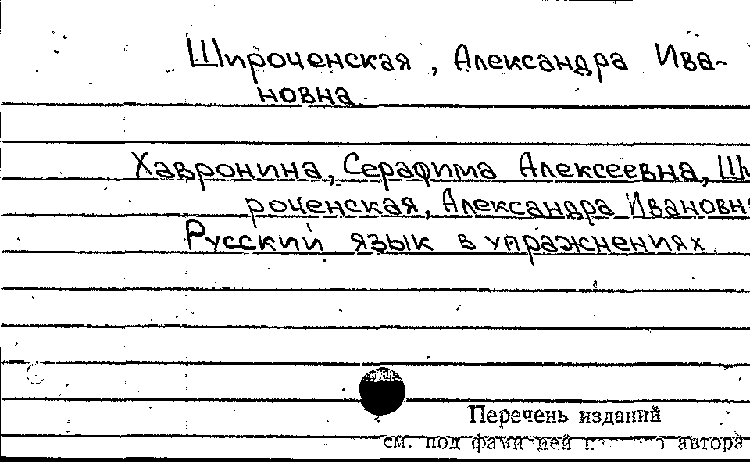 Широченская, Александра Ива-
новна
Хавронина, Серафима Алексеевна, Ши
роченская, Александра Ивановн
Русский язык в упражнениях.
Перечень изданий
см. под автора